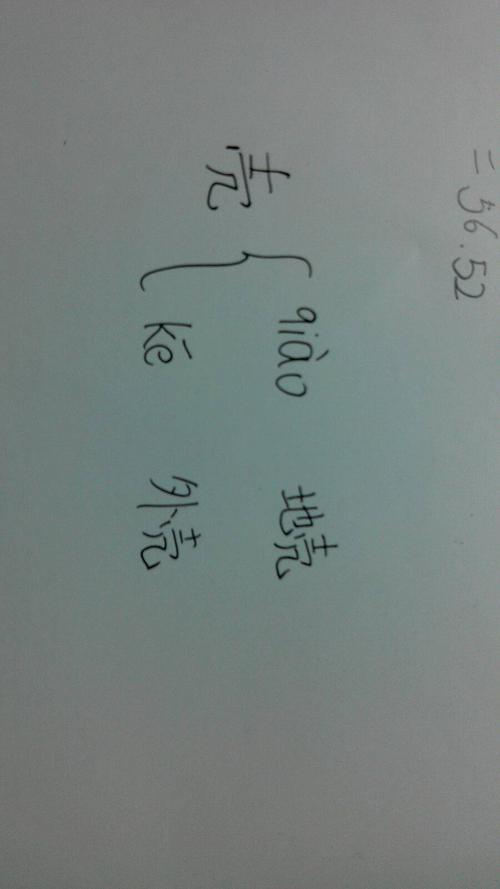 = 56.52
qiào 地壳
壳 {
kē 外壳